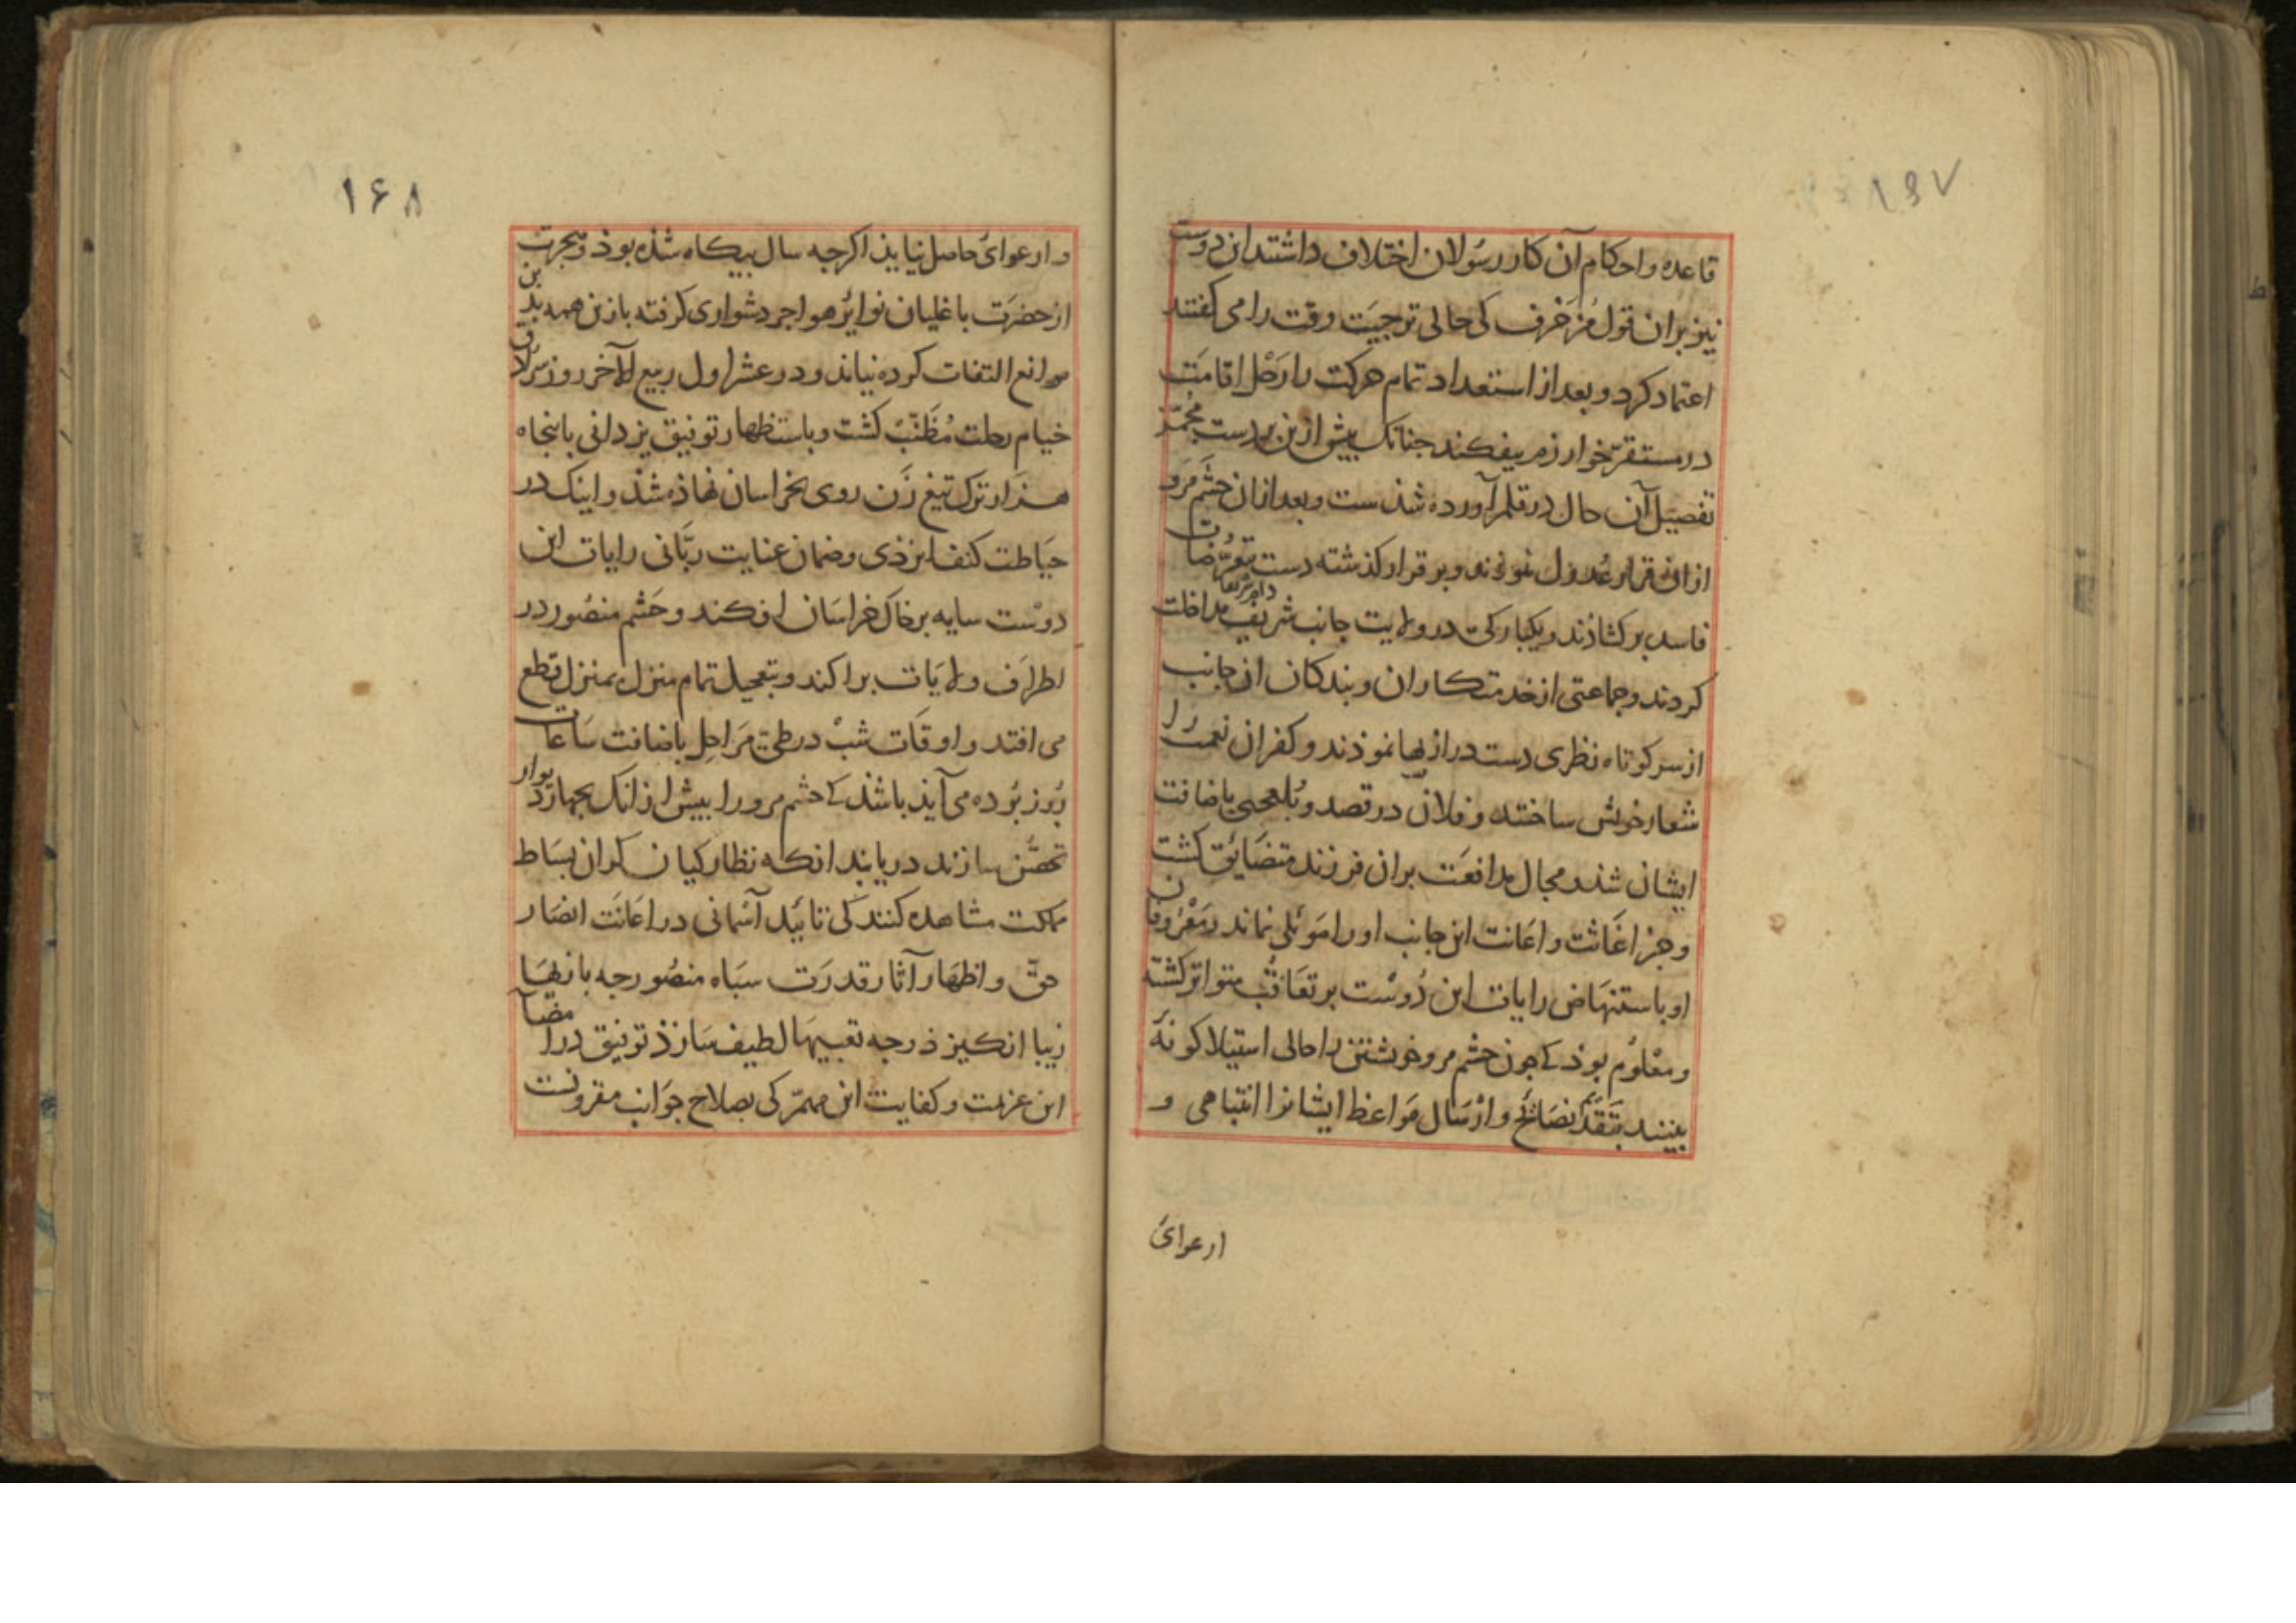 ۱۶۷
قاعده و احکام آن کار رسولان اختلاف داشتند این دوست
نیز بران قول مزخرف کی حالی ترجیت وقت را می کفتند
اعتماد کرد و بعد از استعداد تمام حرکت را رحل اقامت
در مستقر خوارزم بیفکند جنانک بیش ازین بر دست
تفصیل آن حال در قلم آورده شذست و بعد ازان حشم مرو
ازان قرار عدول نموذند و بر قرار کذشته دست تعرضات
فاسد بر کشاذند و یکبارکی در ولایت جانب شریف مداخلت
کردند و جماعتی از خدمتکاران و بندکان ازجانب
از سر کوتاه نظری دست درازیها نموذند و کفران نعمت را
شعار خویش ساختند و فلان در قصد و بلعجبی باضافت
ایشان شذ و مجال مدافعت بران فرزند متضایق کشت
و جز اغاثت و اعانت این جانب او را موئلی نماند و مفزوفان
او باستنهاض رایات این دوست بر تعاقب متواتر کشته
و معلوم بوذ کے جون حشم مرو خویشتن را حالی استیلا کونهٔ
بینند بتقدیم نصائح و ارسال مواعظ ایشانرا انتباهی و
ارعوائی
۱۶۸
و ارعوائی حاصل نیایذ اکرجه سال بیکاه شذه بوذ و
از حضرت باغلیان نوایر هواجر دشواری کرفته بازین همه بدین
موانع التفات کرده نیاند و در عشر اول ربیع الآخر روز
خیام رحلت مطنب کشت و باستظهار توفیق یزدانی با بنجاه
هزار ترک تیغ زن روی بخراسان نهاذه شذ و اینک در
حیاطت کنف ایزذی و ضمان عنایت ربانی رایات این
دوست سایه بر خاک خراسان افکند و حشم منصور در
اطراف ولایات براکند و بتعجیل تمام منزل بمنزل قطع
می افتد و اوقات شب در طی مراحل باضافت ساعات
روز برده می آید باشد کے حشم مرو را بیش ازانک بچهار دیوار
تحصن سازند دریابد انکه نظارکیان کران بساط
مملکت مشاهده کنند کی تائید آسمانی در اعانت انصار
حق و اظهار آثار قدرت سباه منصور جه بازیها
زیبا انکیزذ و جه تعبیها لطیف سازذ توفیق در امضاء
این عزیمت و کفایت این مهم کی بصلاح جوانب مقرونست